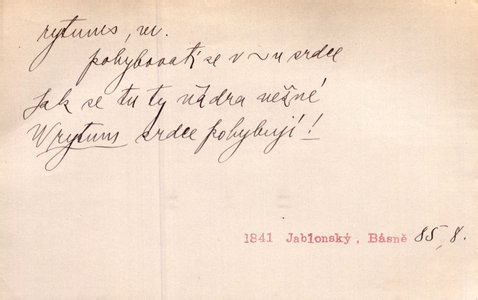 rytums, m.
pohybovati se v ~u srdce
Jak se tu ty nádra něžné
W rytum srdce pohybují!
1841 Jablonský, Básně 85, 8.